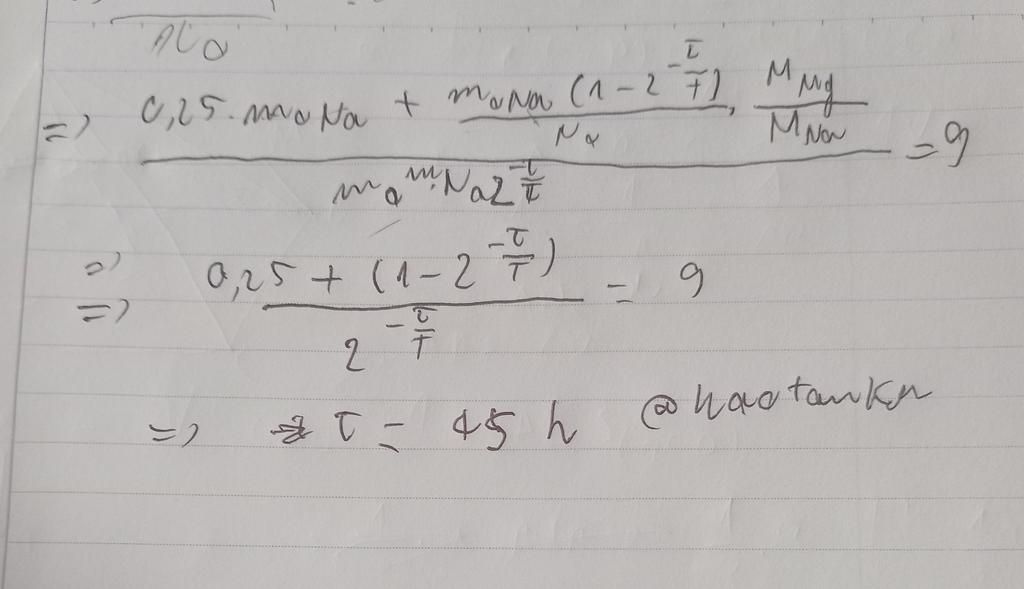 N_0
=> \frac{0,25 . m_0 Na + \frac{m_0 Na (1 - 2^{-\frac{τ}{T}})}{N_α} . \frac{M_{Mg}}{M_{Na}}}{m_0 Na 2^{-\frac{τ}{T}}} = 9
=> \frac{0,25 + (1 - 2^{-\frac{τ}{T}})}{2^{-\frac{τ}{T}}} = 9
=> τ = 45 h @haotamkn